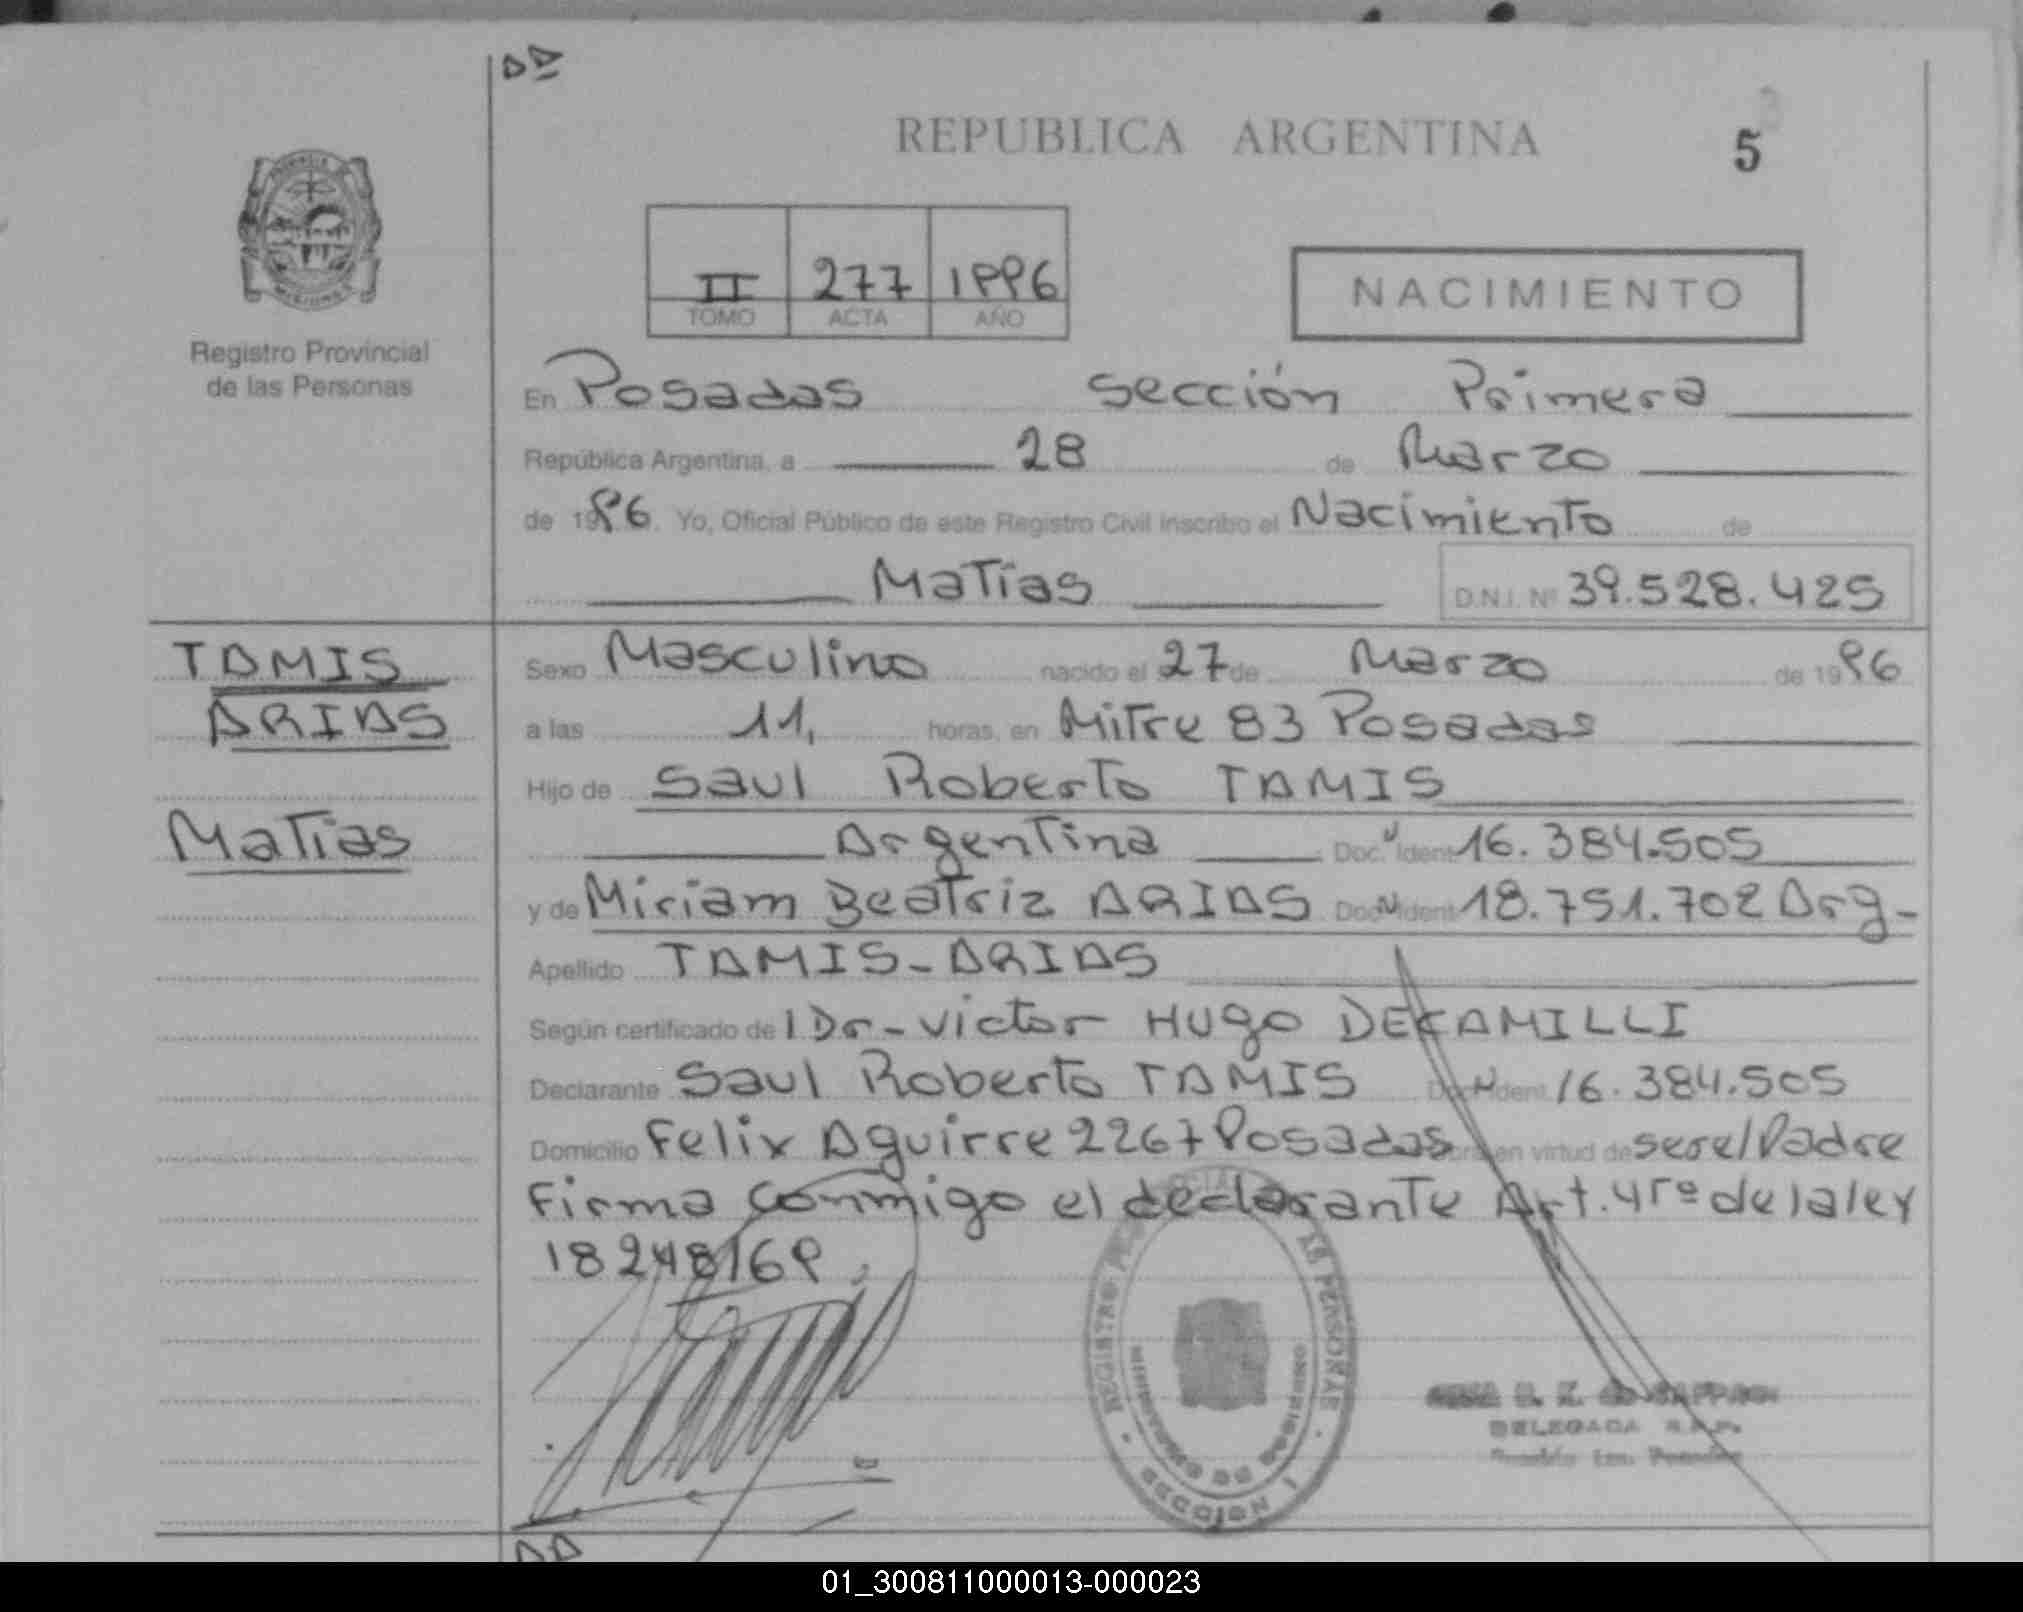 DD
REPUBLICA ARGENTINA
5
II 277 1996
TOMO ACTA AÑO
NACIMIENTO
Registro Provincial
de las Personas
En Posadas sección Primera
República Argentina, a 28 de Marzo
de 1996. Yo, Oficial Público de este Registro Civil inscribo el Nacimiento de
Matías D.N.I. Nº 39.528.425
TAMIS
ARIAS
Matías
Sexo Masculino nacido el 27 de Marzo de 1996
a las 11, horas, en Mitre 83 Posadas
Hijo de Saul Roberto TAMIS
Argentina Doc. Ident 16.384.505
y de Miriam Beatriz ARIAS Doc. Ident 18.751.702 Arg-
Apellido TAMIS-ARIAS
Según certificado de l Dr- Victor Hugo DECAMILLI
Declarante Saul Roberto TAMIS Doc. Ident. 16.384.505
Domicilio Felix Aguirre 2267 Posadas obra en virtud de ser el Padre
Firma conmigo el declarante Art. 4rº de la ley
18248/69.
REGISTRO DE LAS PERSONAS
POSADAS
MISIONES
DELEGADA R.P.P.
DD
01_300811000013-000023